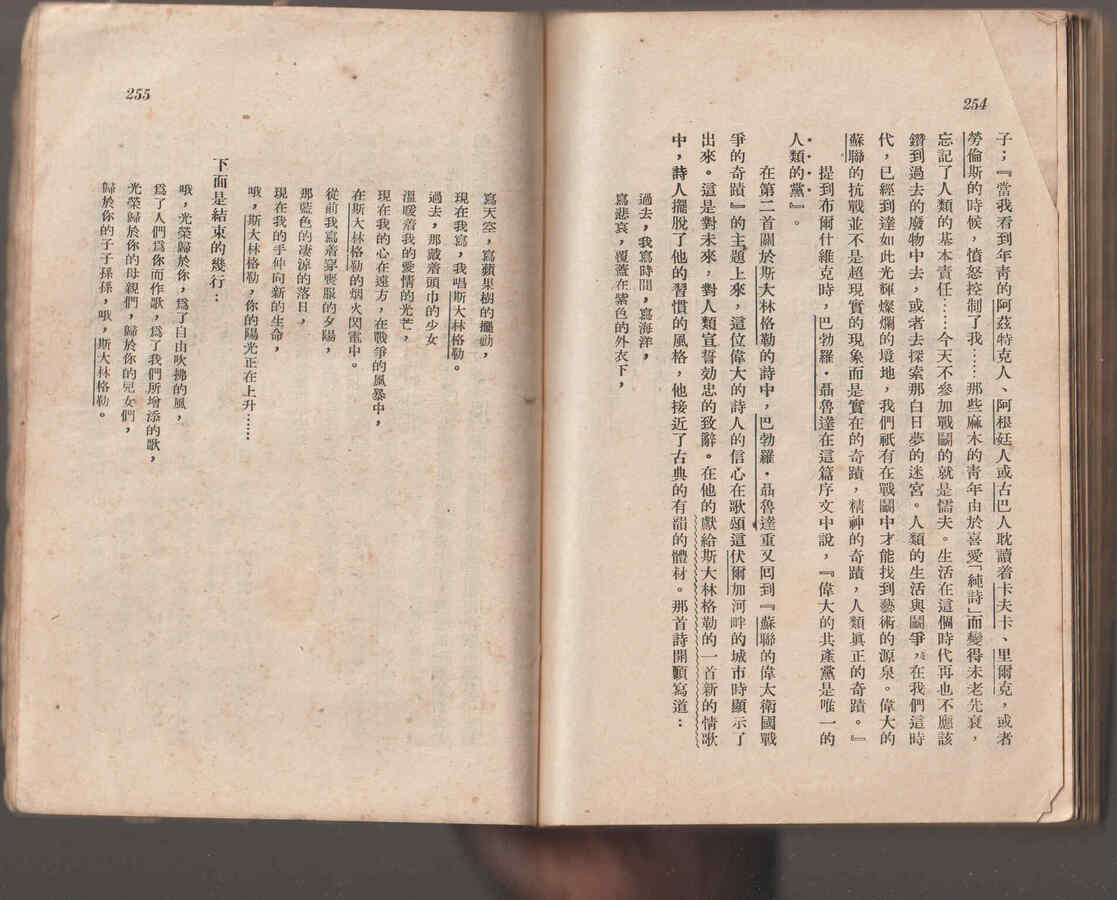 254
子；『當我看到年靑的阿茲特克人、阿根廷人或古巴人耽讀着卡夫卡、里爾克，或者
勞倫斯的時候，憤怒控制了我……那些麻木的靑年由於喜愛「純詩」而變得未老先衰，
忘記了人類的基本責任……今天不參加戰鬭的就是懦夫。生活在這個時代再也不應該
鑽到過去的廢物中去，或者去探索那白日夢的迷宮。人類的生活與鬭爭，在我們這時
代，已經到達如此光輝燦爛的境地，我們祇有在戰鬭中才能找到藝術的源泉。偉大的
蘇聯的抗戰並不是超現實的現象而是實在的奇蹟，精神的奇蹟，人類眞正的奇蹟。』
提到布爾什維克時，巴勃羅・聶魯達在這篇序文中說，『偉大的共產黨是唯一的
人類的黨』。
在第二首關於斯大林格勒的詩中，巴勃羅・聶魯達重又回到『蘇聯的偉大衛國戰
爭的奇蹟』的主題上來，這位偉大的詩人的信心在歌頌這伏爾加河畔的城市時顯示了
出來。這是對未來，對人類宣誓効忠的致辭。在他的獻給斯大林格勒的一首新的情歌
中，詩人擺脫了他的習慣的風格，他接近了古典的有韻的體材。那首詩開頭寫道：
過去，我寫時間，寫海洋，
寫悲哀，覆蓋在紫色的外衣下，
255
寫天空，寫蘋果樹的擺動，
現在我寫，我唱斯大林格勒。
過去，那戴着頭巾的少女
溫暖着我的愛情的光芒，
現在我的心在遠方，在戰爭的風暴中，
在斯大林格勒的烟火閃電中。
從前我寫着穿喪服的夕陽，
那藍色的凄涼的落日，
現在我的手伸向新的生命，
哦，斯大林格勒，你的陽光正在上升……
下面是結束的幾行：
哦，光榮歸於你，爲了自由吹拂的風，
爲了人們爲你而作歌，爲了我們所增添的歌，
光榮歸於你的母親們，歸於你的兒女們，
歸於你的子子孫孫，哦，斯大林格勒。